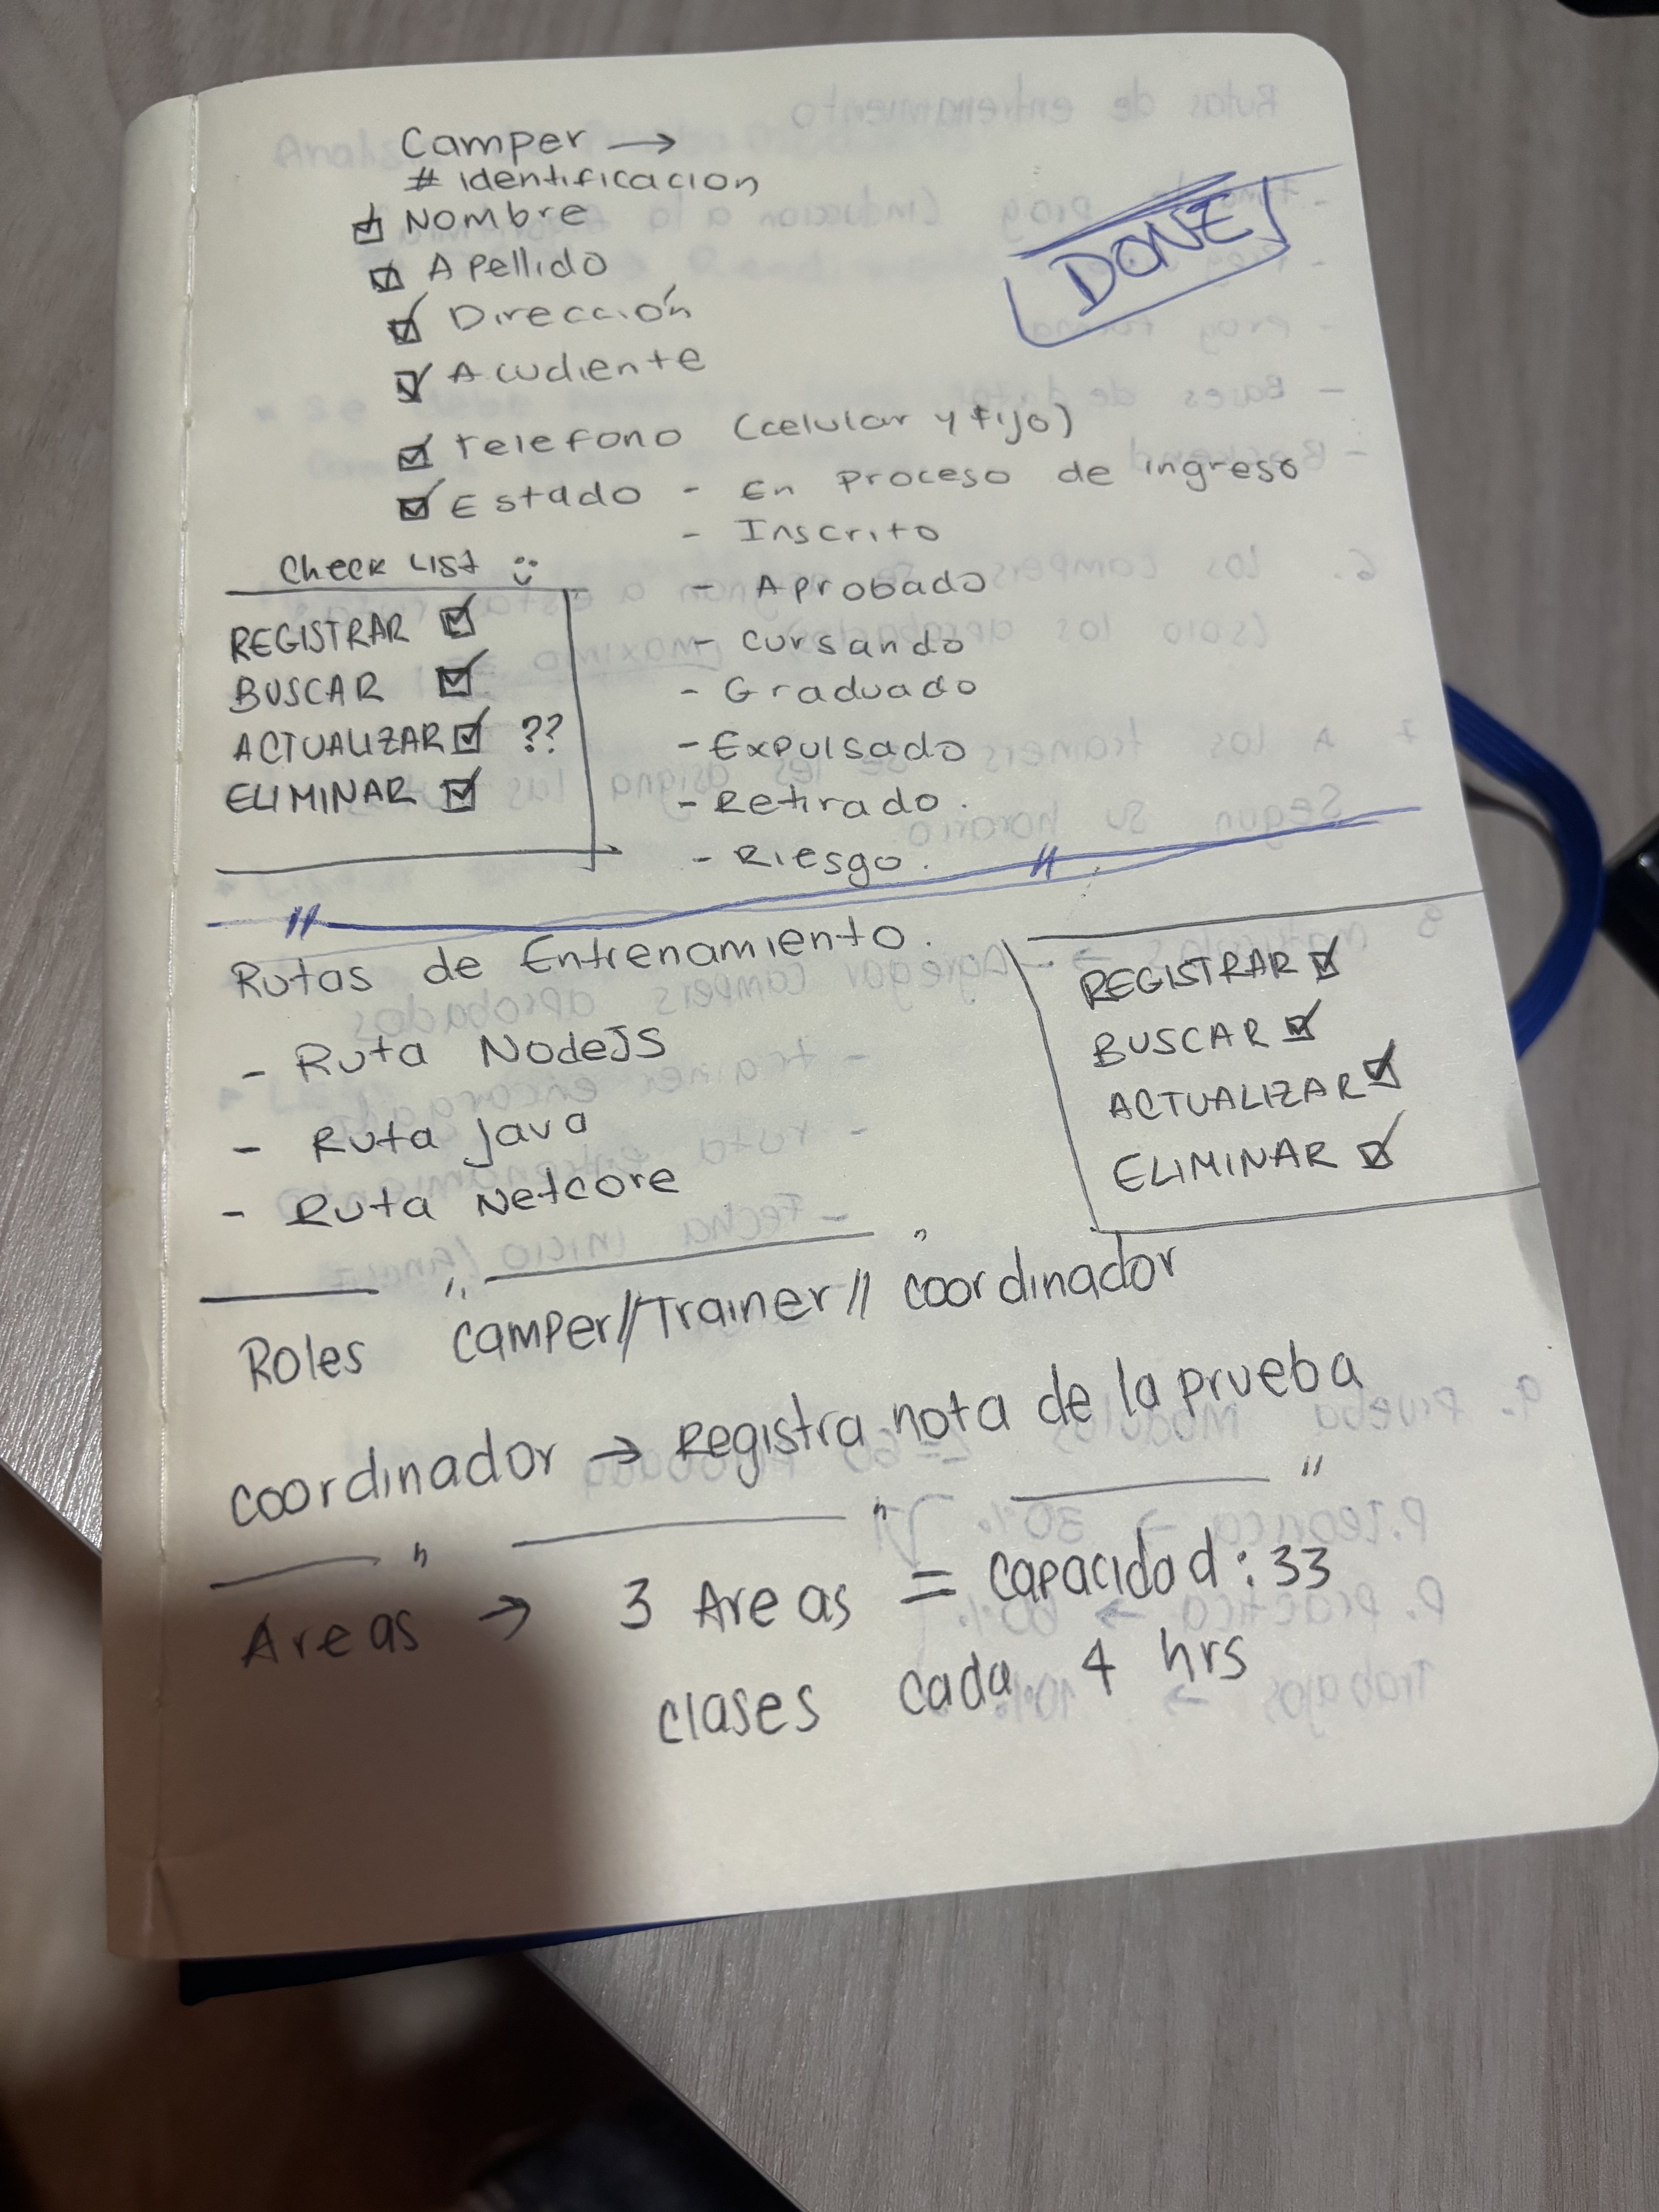 Camper →
# identificacion
☑ Nombre
☑ Apellido
☑ Dirección
☑ Acudiente
☑ Telefono (celular y fijo)
☑ Estado - En proceso de ingreso
- Inscrito
- Aprobado
- Cursando
- Graduado
- Expulsado
- Retirado.
- Riesgo.
DONE
Check List
REGISTRAR ☑
BUSCAR ☑
ACTUALIZAR ☑ ??
ELIMINAR ☑
Rutas de Entrenamiento.
- Ruta NodeJS
- Ruta Java
- Ruta Netcore
REGISTRAR ☑
BUSCAR ☑
ACTUALIZAR ☑
ELIMINAR ☑
Roles camper // Trainer // coordinador
coordinador → Registra nota de la prueba
Areas → 3 Areas = capacidad: 33
clases cada 4 hrs